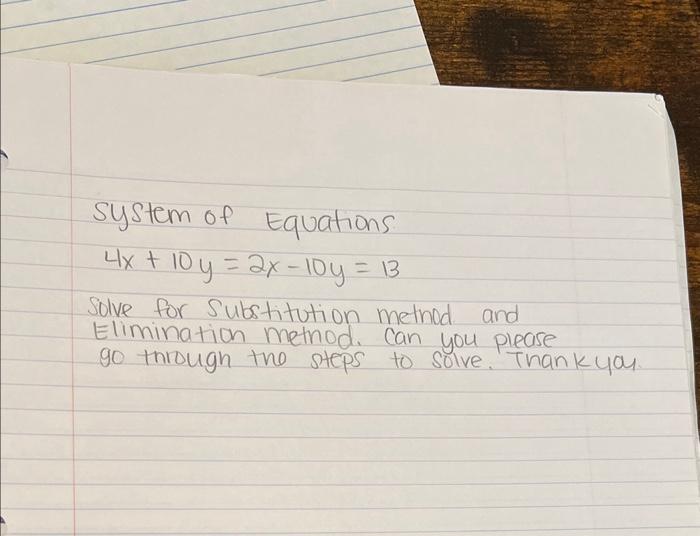 System of Equations
4x + 10y = 2x - 10y = 13
Solve for Substitution method and
Elimination method. Can you please
go through the steps to solve. Thank you.